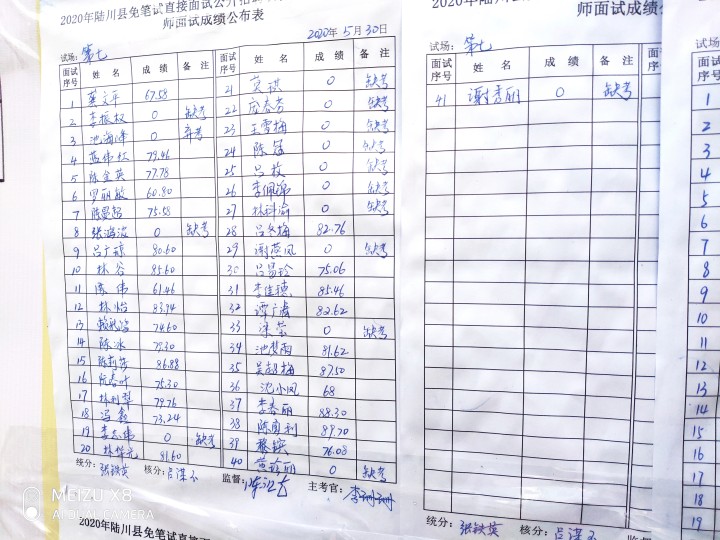 2020年陆川县免笔试直接面试公开招
师面试成绩公布表
2020年5月30日
试场: 第七
面试序号 姓 名 成 绩 备 注 面试序号 姓 名 成 绩 备 注
1 67.58 21 莫琪 0 缺考
2 李振权 0 缺考 22 庞春芳 0 缺考
3 池海峰 0 弃考 23 王雪梅 0 缺考
4 蓝伟杜 79.46 24 陈 0 缺考
5 陈金英 77.78 25 吕枚 0 缺考
6 罗丽敏 60.80 26 李佩 0 缺考
7 75.58 27 林科渝 0 缺考
8 张海波 0 缺考 28 吕冬梅 82.76
9 吕广琼 80.60 29 谢燕凤 0 缺考
10 林谷 85.60 30 吕昌玲 75.06
11 伟 61.46 31 李佳穗 85.46
12 林怡 83.94 32 谭广睿 82.62
13 74.60 33 梁 0 缺考
14 陈冰 79.30 34 池梦雨 81.62
15 陈莉莎 86.88 35 吴 梅 87.50
16 春叶 75.30 36 沈小凤 68
17 林利 79.76 37 李春丽 88.30
18 冯鑫 73.24 38 陈 利 89.70
19 李志伟 0 缺考 39 76.08
20 林 91.60 40 黄珍丽 0 缺考
统分: 张铁英 核分: 吕泽玉 监督: 主考官: 李珊珊
MEIZU X8
AI DUAL CAMERA
2020年陆川县免笔试直接
2020年陆川县免笔试
师面试成绩
试场: 第七
面试序号 姓 名 成 绩 备 注 面试序号
41 谢秀丽 0 缺考
统分: 张铁英 核分: 吕泽玉
试场
面试序号
1
2
3
4
5
6
7
8
9
10
11
12
13
14
15
16
17
18
19